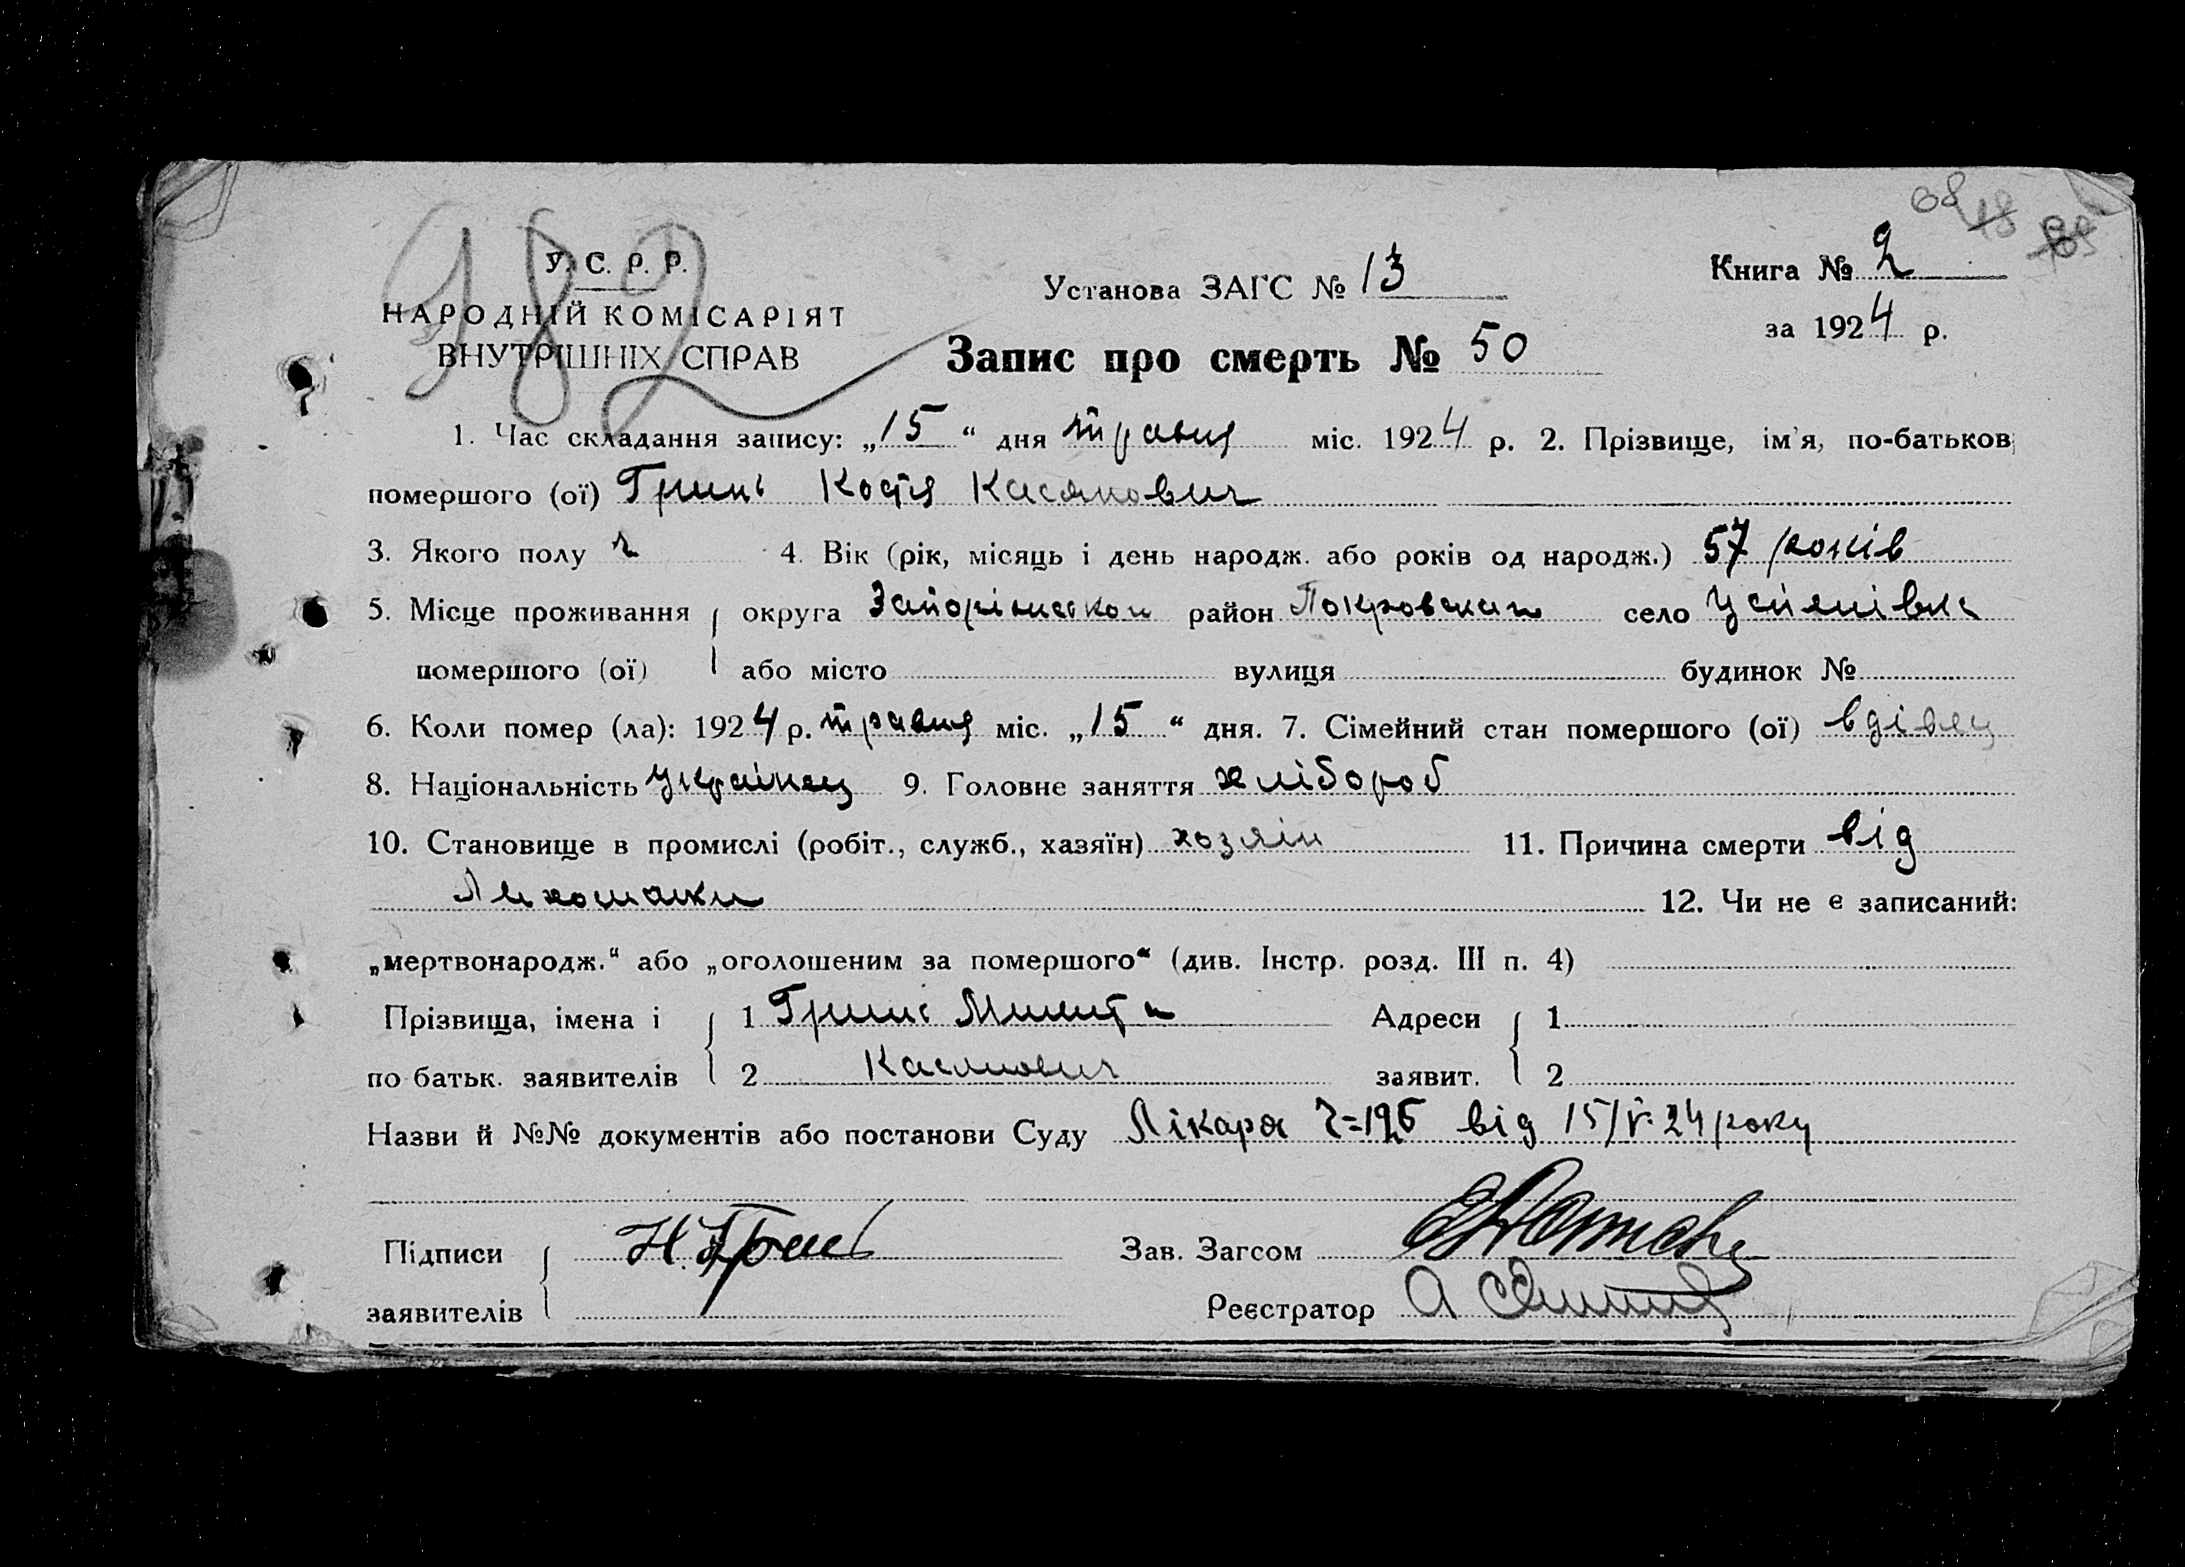 982
68 48
У. С. Р. Р.
НАРОДНІЙ КОМІСАРІЯТ
ВНУТРІШНІХ СПРАВ
Установа ЗАГС № 13
Книга № 2
за 1924 р.
Запис про смерть № 50
1. Час складання запису: „15“ дня травня міс. 1924 р. 2. Прізвище, ім'я, по-батьков
помершого (ої) Гринь Костя Касянович
3. Якого полу ч 4. Вік (рік, місяць і день народж. або років од народж.) 57 років
5. Місце проживання округа Запоріжської район Покровськаго село Успенівка
помершого (ої) або місто вулиця будинок №
6. Коли помер (ла): 1924 р. травня міс. „15“ дня. 7. Сімейний стан помершого (ої) вдівец
8. Національність Українец 9. Головне заняття хлібороб
10. Становище в промислі (робіт., служб., хазяїн) хозяін 11. Причина смерти від
Лихоманки 12. Чи не є записаний:
„мертвонародж.“ або „оголошеним за помершого“ (див. Інстр. розд. III п. 4)
Прізвища, імена і 1 Гринь Микита Адреси 1
по батьк. заявителів 2 Касянович заявит. 2
Назви й №№ документів або постанови Суду Лікаря Ч=196 від 15/V-24 року
Підписи Н. Гринь Зав. Загсом
заявителів Реєстратор А